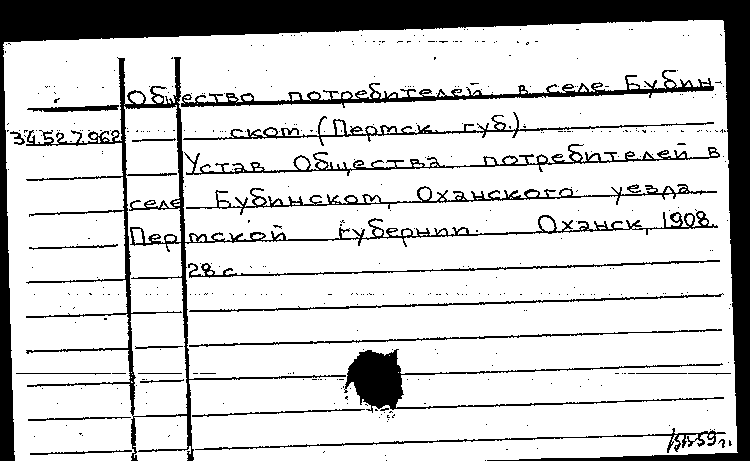 Общество потребителей в селе Бубин-
34.52.7.962 ском (Пермск. губ.).
Устав Общества потребителей в
селе Бубинском, Оханского уезда,
Пермской губернии. Оханск, 1908.
28 с.